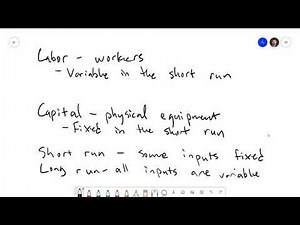 Labor - workers
- Variable in the short run
Capital - physical equipment
- Fixed in the short run
Short run - some inputs fixed
Long run - all inputs are variable